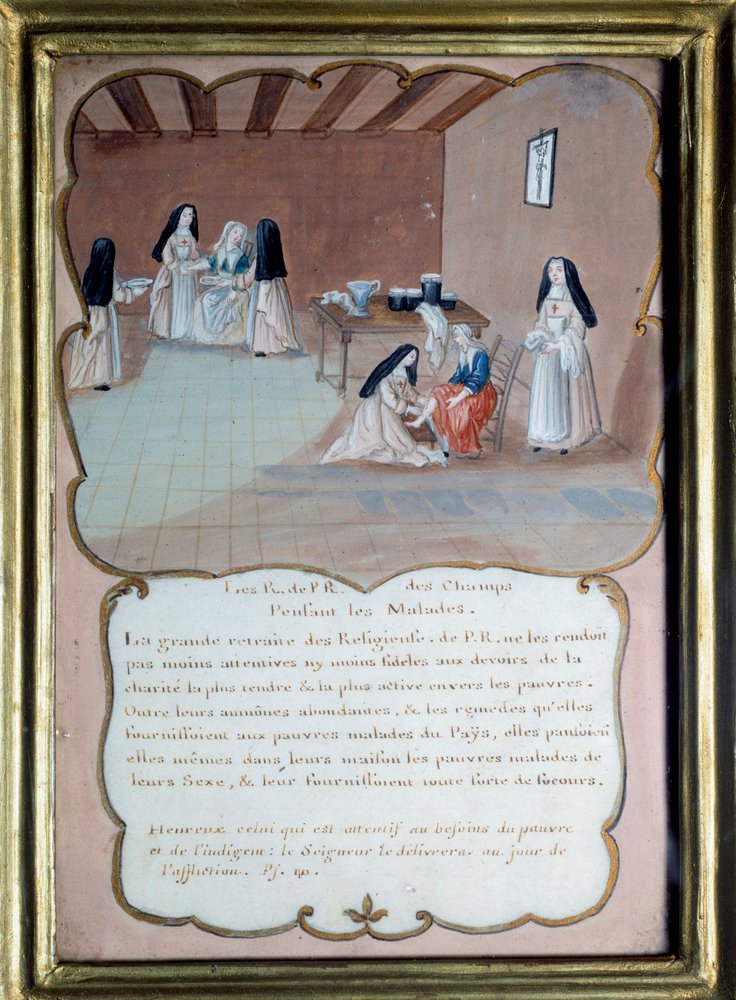 Les R. de P R. des Champs
Penſant les Malades.
La grande retraite des Religieuſe. de P.R. ne les rendoit
pas moins attentives ny moins fideles aux devoirs de la
charité la plus tendre & la plus active envers les pauvres:
Outre leurs aumônes abondantes, & les remedes qu'elles
fourniſſoient aux pauvres malades du Païs, elles panſoien
elles mêmes dans leurs maiſon les pauvres malades de
leurs Sexe, & leur fourniſſoient toute ſorte de ſecours.
Heureux celui qui est attentif au beſoins du pauvre
et de l'indigent: le Seigneur le délivrera au jour de
l'affliction. Pſ. 40.